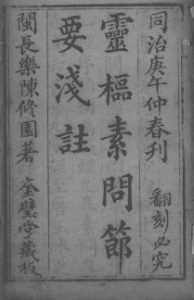 同治庚午仲春刊
翻刻必究
靈樞素問節
要淺註
閩長樂陳修園著
奎璧堂藏板